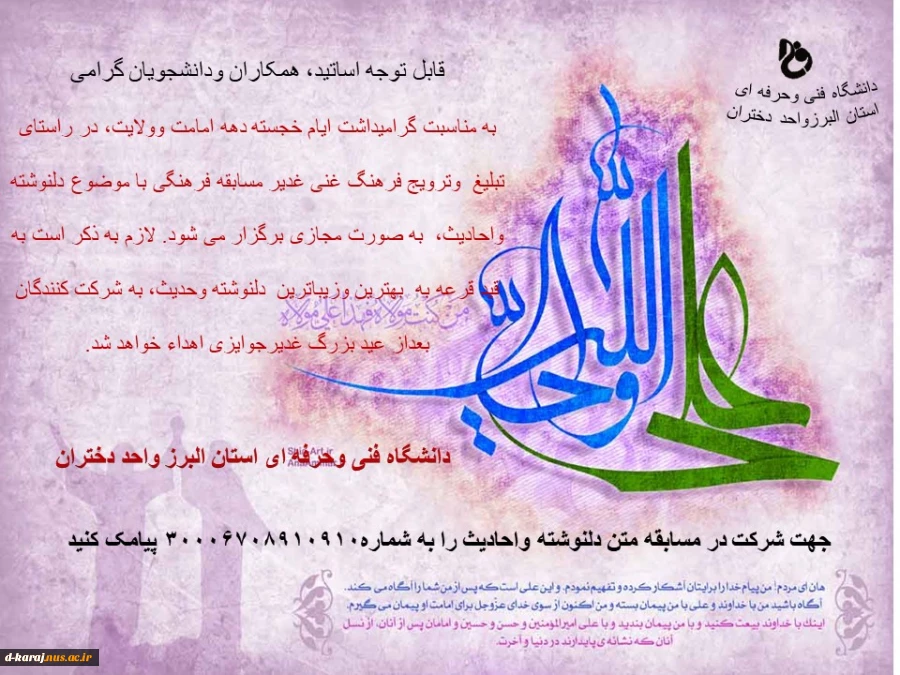 دانشگاه فنی وحرفه ای
استان البرزواحد دختران
قابل توجه اساتید، همکاران ودانشجویان گرامی
به مناسبت گرامیداشت ایام خجسته دهه امامت وولایت، در راستای
تبلیغ وترویج فرهنگ غنی غدیر مسابقه فرهنگی با موضوع دلنوشته
واحادیث، به صورت مجازی برگزار می شود. لازم به ذکر است به
قید قرعه به بهترین وزیباترین دلنوشته وحدیث، به شرکت کنندگان
من کنت مولاه فهذا علی مولاه
بعداز عید بزرگ غدیرجوایزی اهداء خواهد شد.
علی ولی الله
دانشگاه فنی وحرفه ای استان البرز واحد دختران
جهت شرکت در مسابقه متن دلنوشته واحادیث را به شماره۳۰۰۰۶۷۰۸۹۱۰۹۱۰ پیامک کنید
هان ای مردم! من پیام خدا را برایتان آشکار کرده و تفهیم نمودم. و این علی است که پس از من شما را آگاه می کند.
آگاه باشید من با خداوند و علی با من پیمان بسته و من اکنون از سوی خدای عزّوجل برای امامت او پیمان می گیرم.
اینک با خداوند بیعت کنید و با من پیمان بندید و با علی امیرالمؤمنین و حسن و حسین و امامان پس از آنان، از نسل
آنان که نشانه ی پایدارند در دنیا و آخرت.
d-karaj.nus.ac.ir